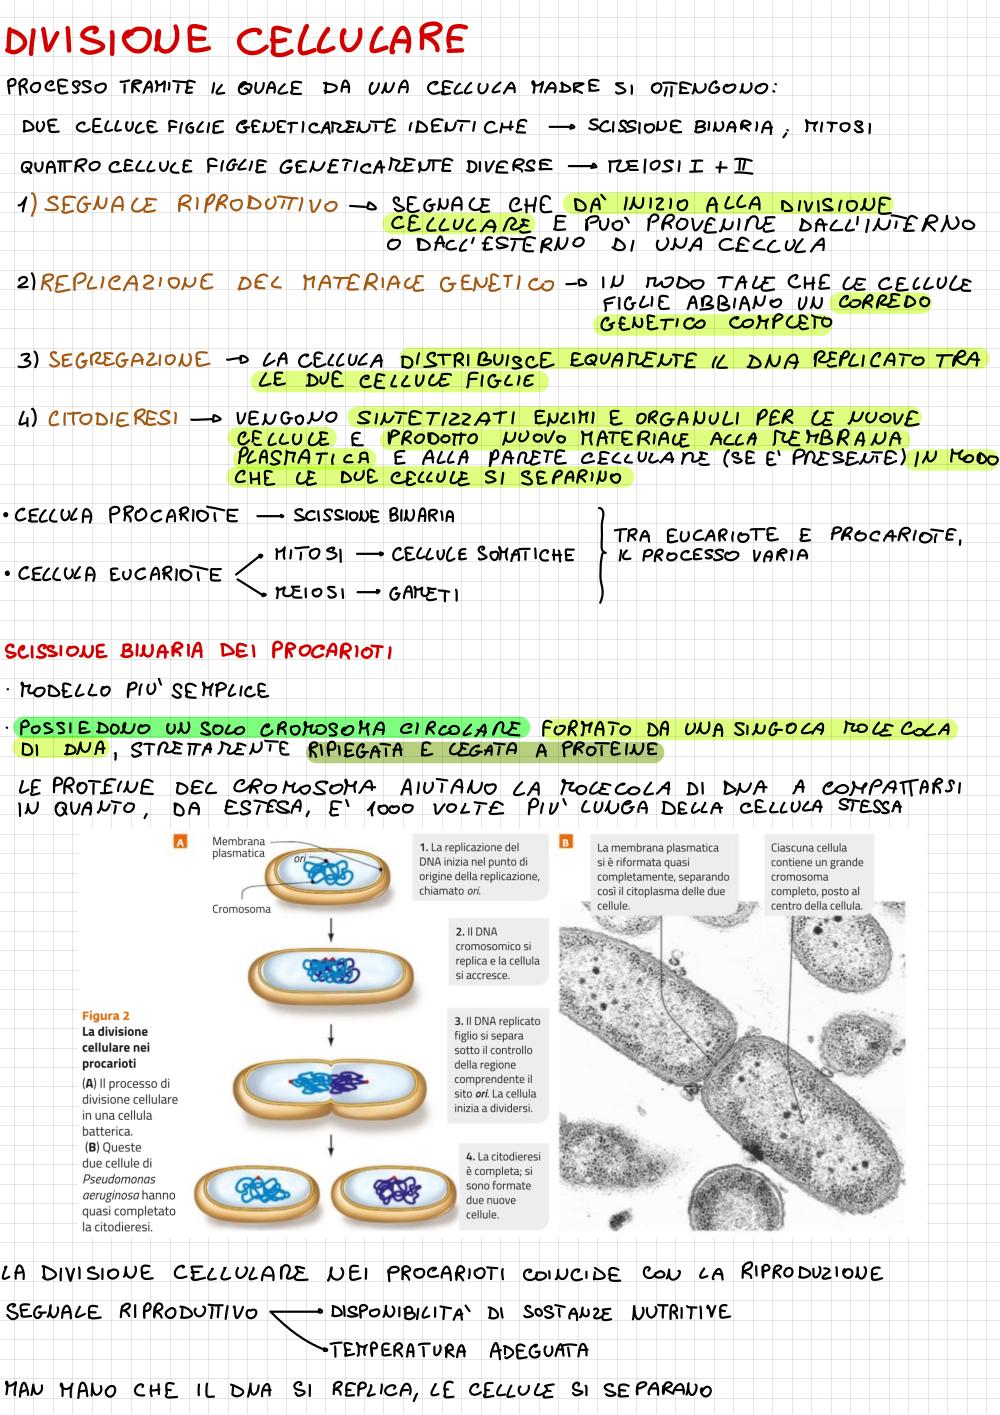 DIVISIONE CELLULARE
PROCESSO TRAMITE IL QUALE DA UNA CELLULA MADRE SI OTTENGONO:
DUE CELLULE FIGLIE GENETICAMENTE IDENTICHE → SCISSIONE BINARIA, MITOSI
QUATTRO CELLULE FIGLIE GENETICAMENTE DIVERSE → MEIOSI I + II
1) SEGNALE RIPRODUTTIVO → SEGNALE CHE DA' INIZIO ALLA DIVISIONE
CELLULARE E PUO' PROVENIRE DALL'INTERNO
O DALL'ESTERNO DI UNA CELLULA
2) REPLICAZIONE DEL MATERIALE GENETICO → IN MODO TALE CHE LE CELLULE
FIGLIE ABBIANO UN CORREDO
GENETICO COMPLETO
3) SEGREGAZIONE → LA CELLULA DISTRIBUISCE EQUAMENTE IL DNA REPLICATO TRA
LE DUE CELLULE FIGLIE
4) CITODIERESI → VENGONO SINTETIZZATI ENZIMI E ORGANULI PER LE NUOVE
CELLULE E PRODOTTO NUOVO MATERIALE ALLA MEMBRANA
PLASMATICA E ALLA PARETE CELLULARE (SE E' PRESENTE) IN MODO
CHE LE DUE CELLULE SI SEPARINO
• CELLULA PROCARIOTE → SCISSIONE BINARIA
• CELLULA EUCARIOTE
MITOSI → CELLULE SOMATICHE
MEIOSI → GAMETI
TRA EUCARIOTE E PROCARIOTE,
IL PROCESSO VARIA
SCISSIONE BINARIA DEI PROCARIOTI
· MODELLO PIU' SEMPLICE
· POSSIEDONO UN SOLO CROMOSOMA CIRCOLARE FORMATO DA UNA SINGOLA MOLECOLA
DI DNA, STRETTAMENTE RIPIEGATA E LEGATA A PROTEINE
LE PROTEINE DEL CROMOSOMA AIUTANO LA MOLECOLA DI DNA A COMPATTARSI
IN QUANTO, DA ESTESA, E' 1000 VOLTE PIU' LUNGA DELLA CELLULA STESSA
A
Membrana
plasmatica
ori
Cromosoma
1. La replicazione del
DNA inizia nel punto di
origine della replicazione,
chiamato ori.
2. Il DNA
cromosomico si
replica e la cellula
si accresce.
3. Il DNA replicato
figlio si separa
sotto il controllo
della regione
comprendente il
sito ori. La cellula
inizia a dividersi.
4. La citodieresi
è completa; si
sono formate
due nuove
cellule.
B
La membrana plasmatica
si è riformata quasi
completamente, separando
così il citoplasma delle due
cellule.
Ciascuna cellula
contiene un grande
cromosoma
completo, posto al
centro della cellula.
Figura 2
La divisione
cellulare nei
procarioti
(A) Il processo di
divisione cellulare
in una cellula
batterica.
(B) Queste
due cellule di
Pseudomonas
aeruginosa hanno
quasi completato
la citodieresi.
LA DIVISIONE CELLULARE NEI PROCARIOTI COINCIDE CON LA RIPRODUZIONE
SEGNALE RIPRODUTTIVO → DISPONIBILITA' DI SOSTANZE NUTRITIVE
TEMPERATURA ADEGUATA
MAN MANO CHE IL DNA SI REPLICA, LE CELLULE SI SEPARANO